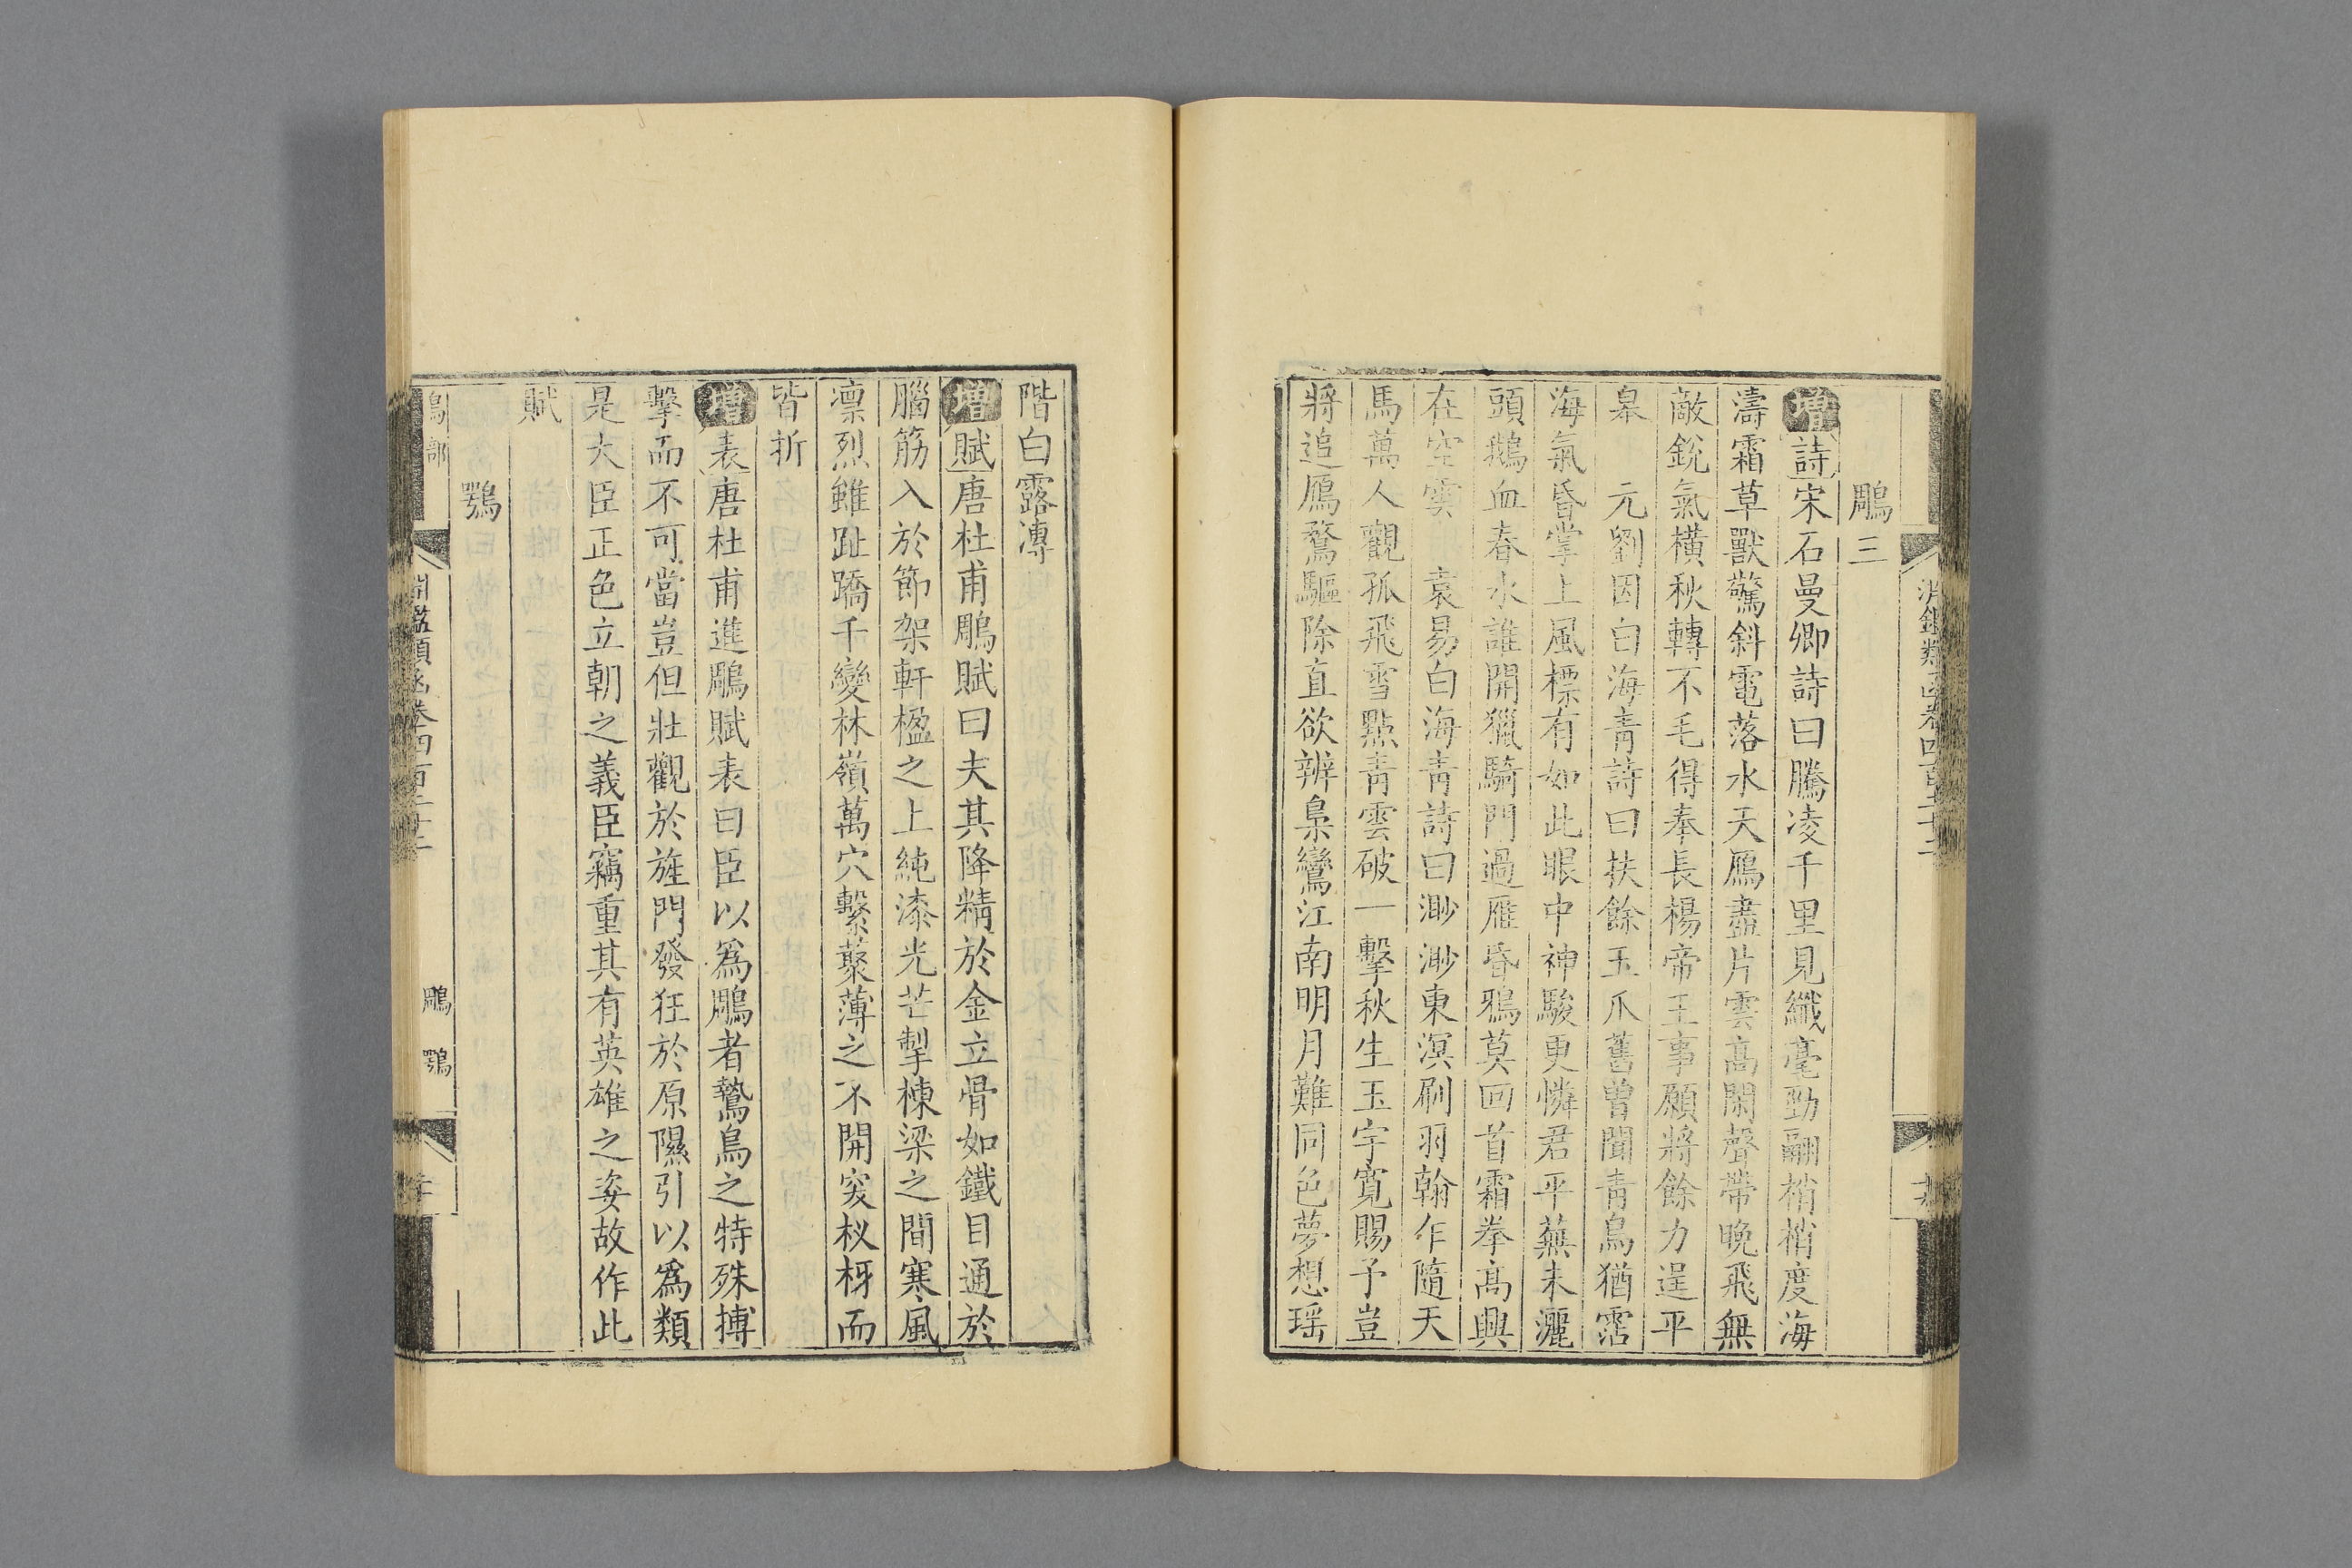 鵰三
增詩宋石曼卿詩曰騰凌千里見纖毫勁翮梢梢度海
濤霜草獸驚斜電落水天鴈盡片雲高閑聲帶晚飛無
敵銳氣橫秋轉不毛得奉長楊帝王事願將餘力逞平
皋　元劉因白海青詩曰扶餘玉爪舊曾聞青鳥猶霑
海氣昏掌上風標有如此眼中神駿更憐君平蕪未灑
頭鵝血春水誰開獵騎門過雁昏鴉莫回首霜拳高興
在空雲　袁易白海青詩曰渺渺東溟刷羽翰乍隨天
馬萬人觀孤飛雪點青雲破一擊秋生玉宇寬賜予豈
將追鴈鶩驅除直欲辨梟鸞江南明月難同色夢想瑤
階白露漙
增賦唐杜甫鵰賦曰夫其降精於金立骨如鐵目通於
腦筋入於節架軒楹之上純漆光芒掣棟梁之間寒風
凛烈雖趾蹻千變林嶺萬穴繫蘩薄之不開突杈枒而
皆折
增表唐杜甫進鵰賦表曰臣以爲鵰者鷙鳥之特殊搏
擊而不可當豈但壯觀於旌門發狂於原隰引以爲類
是大臣正色立朝之義臣竊重其有英雄之姿故作此
賦
鶚
鳥部
淵鑑類函卷四百二十二
鵰　鶚